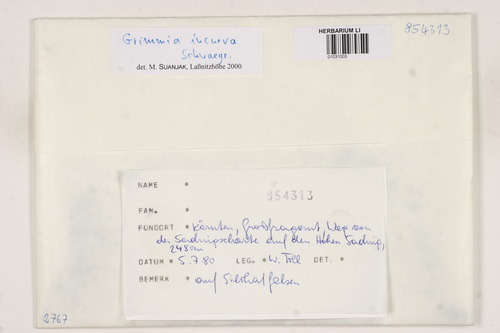 Grimmia incurva
Schwaegr.
det. M. SUANJAK, Laßnitzhöhe 2000
HERBARIUM LI
01031003
854313
NAME *
854313
FAM. *
FUNDORT * Kärnten, Großfragant, Weg von
der Sadnigscharte auf den Hohen Sadnig,
2480m
DATUM * 5.7.80 LEG. * W. Till DET: *
BEMERK * auf Silikatfelsen
2767